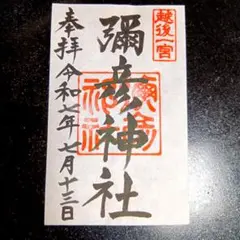 越後一宮
彌彦神社
奉拝令和七年七月十三日